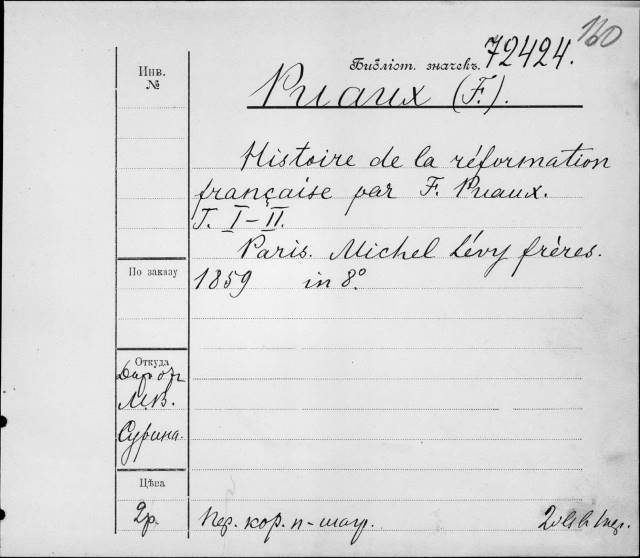 160
Инв.
№
Библіот. значекъ. 72424.
Puaux (F.).
Histoire de la réformation
française par F. Puaux.
T. I-II.
Paris. Michel Lévy frères.
По заказу
1859 in 8°.
Откуда
Даръ отъ
М.В.
Сурина.
Цѣна
2р.
Пер. кор. п-шаг.